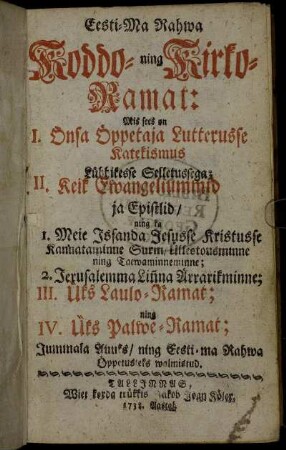 Eesti-Ma Rahwa
Koddo- ning Kirko-
Ramat:
Mis sees on
I. Onsa Öppetaja Lutterusse
Katekismus
Lühhikesse Selletussega;
II. Keik Ewangeliummid
ja Epistlid/
ning ka
1. Meie Issanda Jesusse Kristusse
Kannatamine Surm/ Ülestousminne
ning Taewaminneminne;
2. Jerusalemma Linna Ärrarikminne;
III. Üks Laulo-Ramat;
ning
IV. Üks Palwe-Ramat;
Jummala Auuks/ ning Eesti-ma Rahwa
Öppetusseks walmistud.
TALLINNAS,
Wiet korda trükkis Jakob Joan Köler,
Aastal.